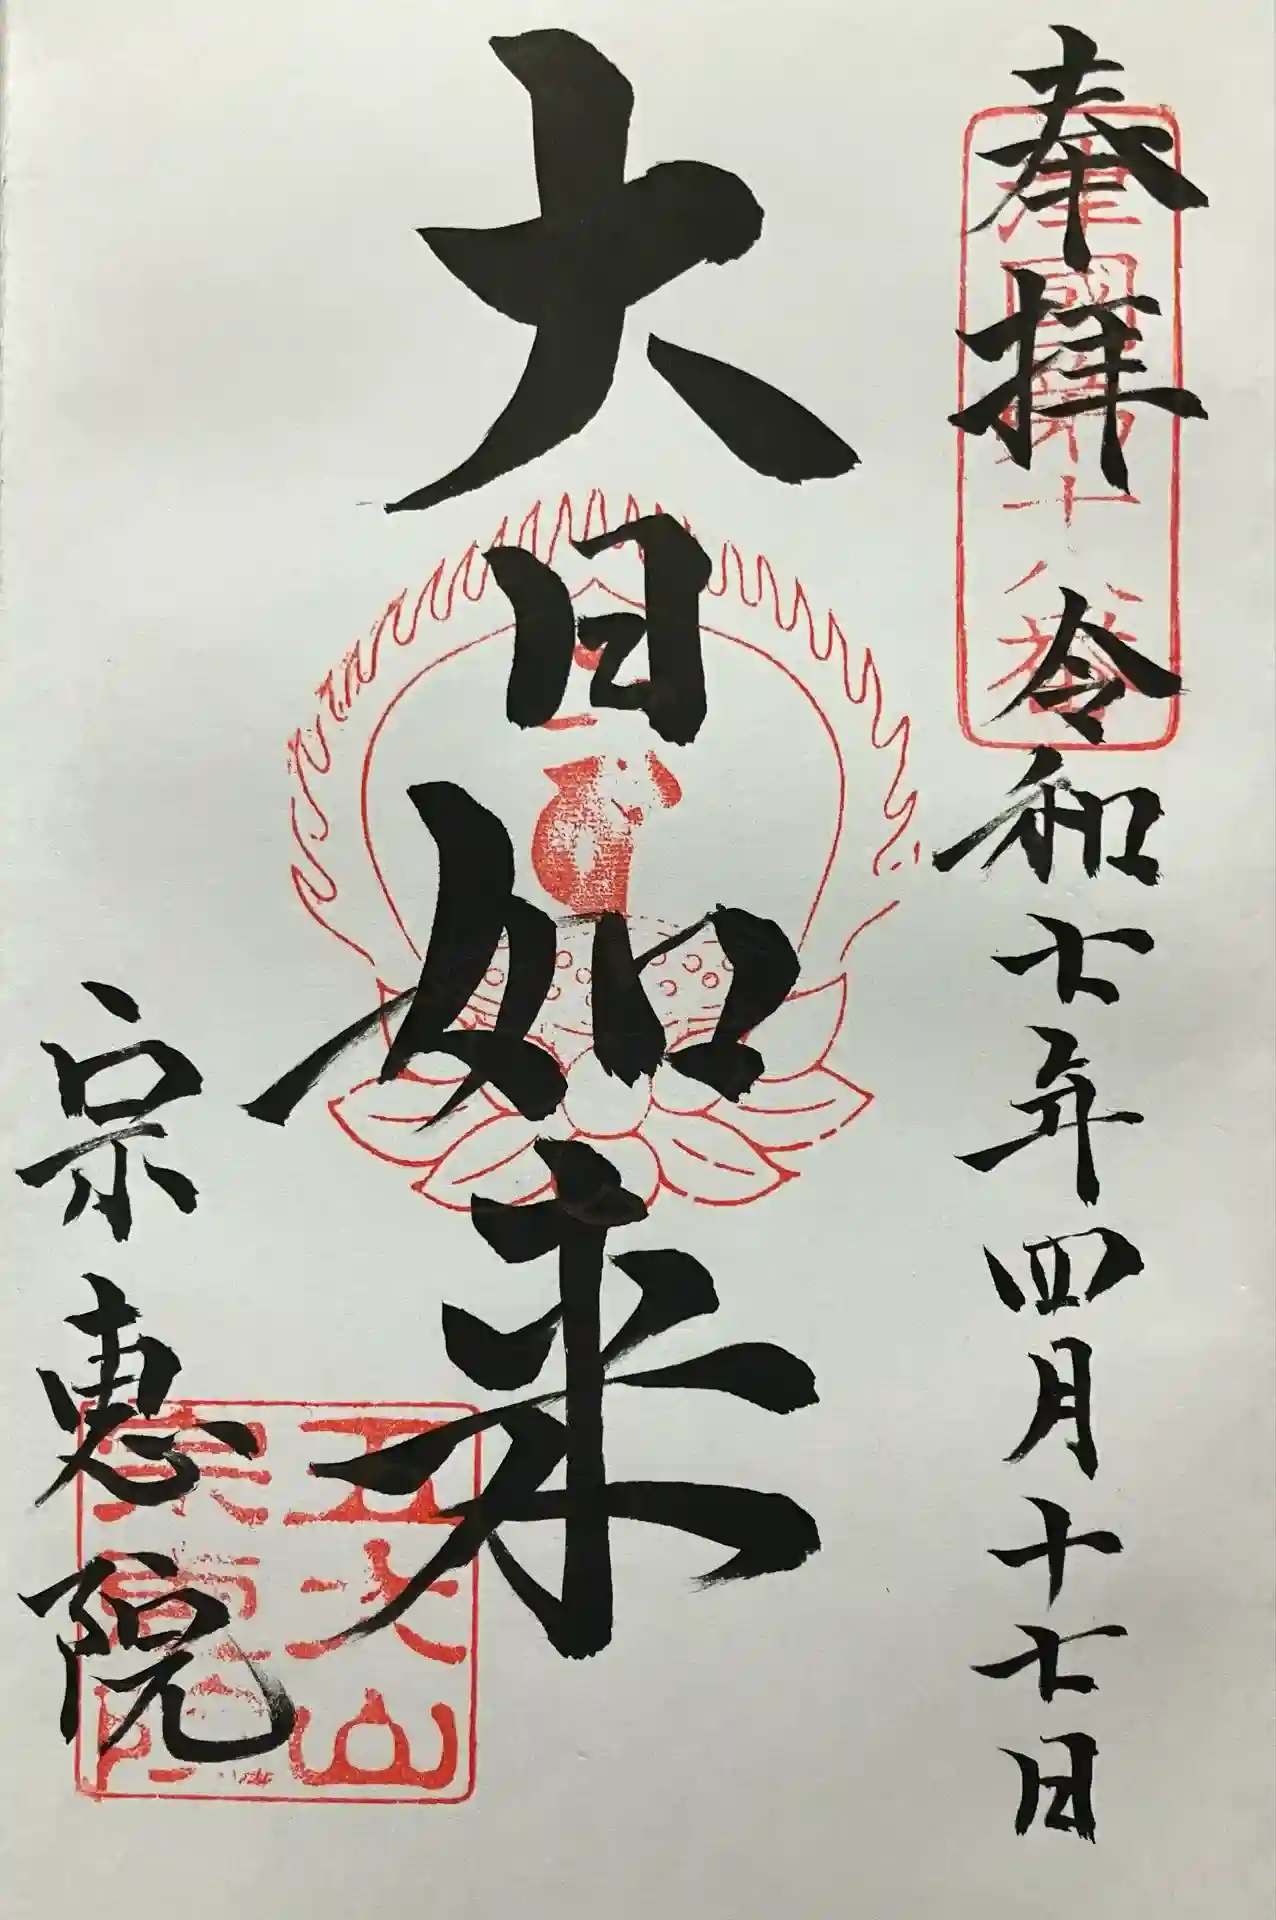 奉拝 令和七年四月十七日
大日如来
宗恵院
五大山